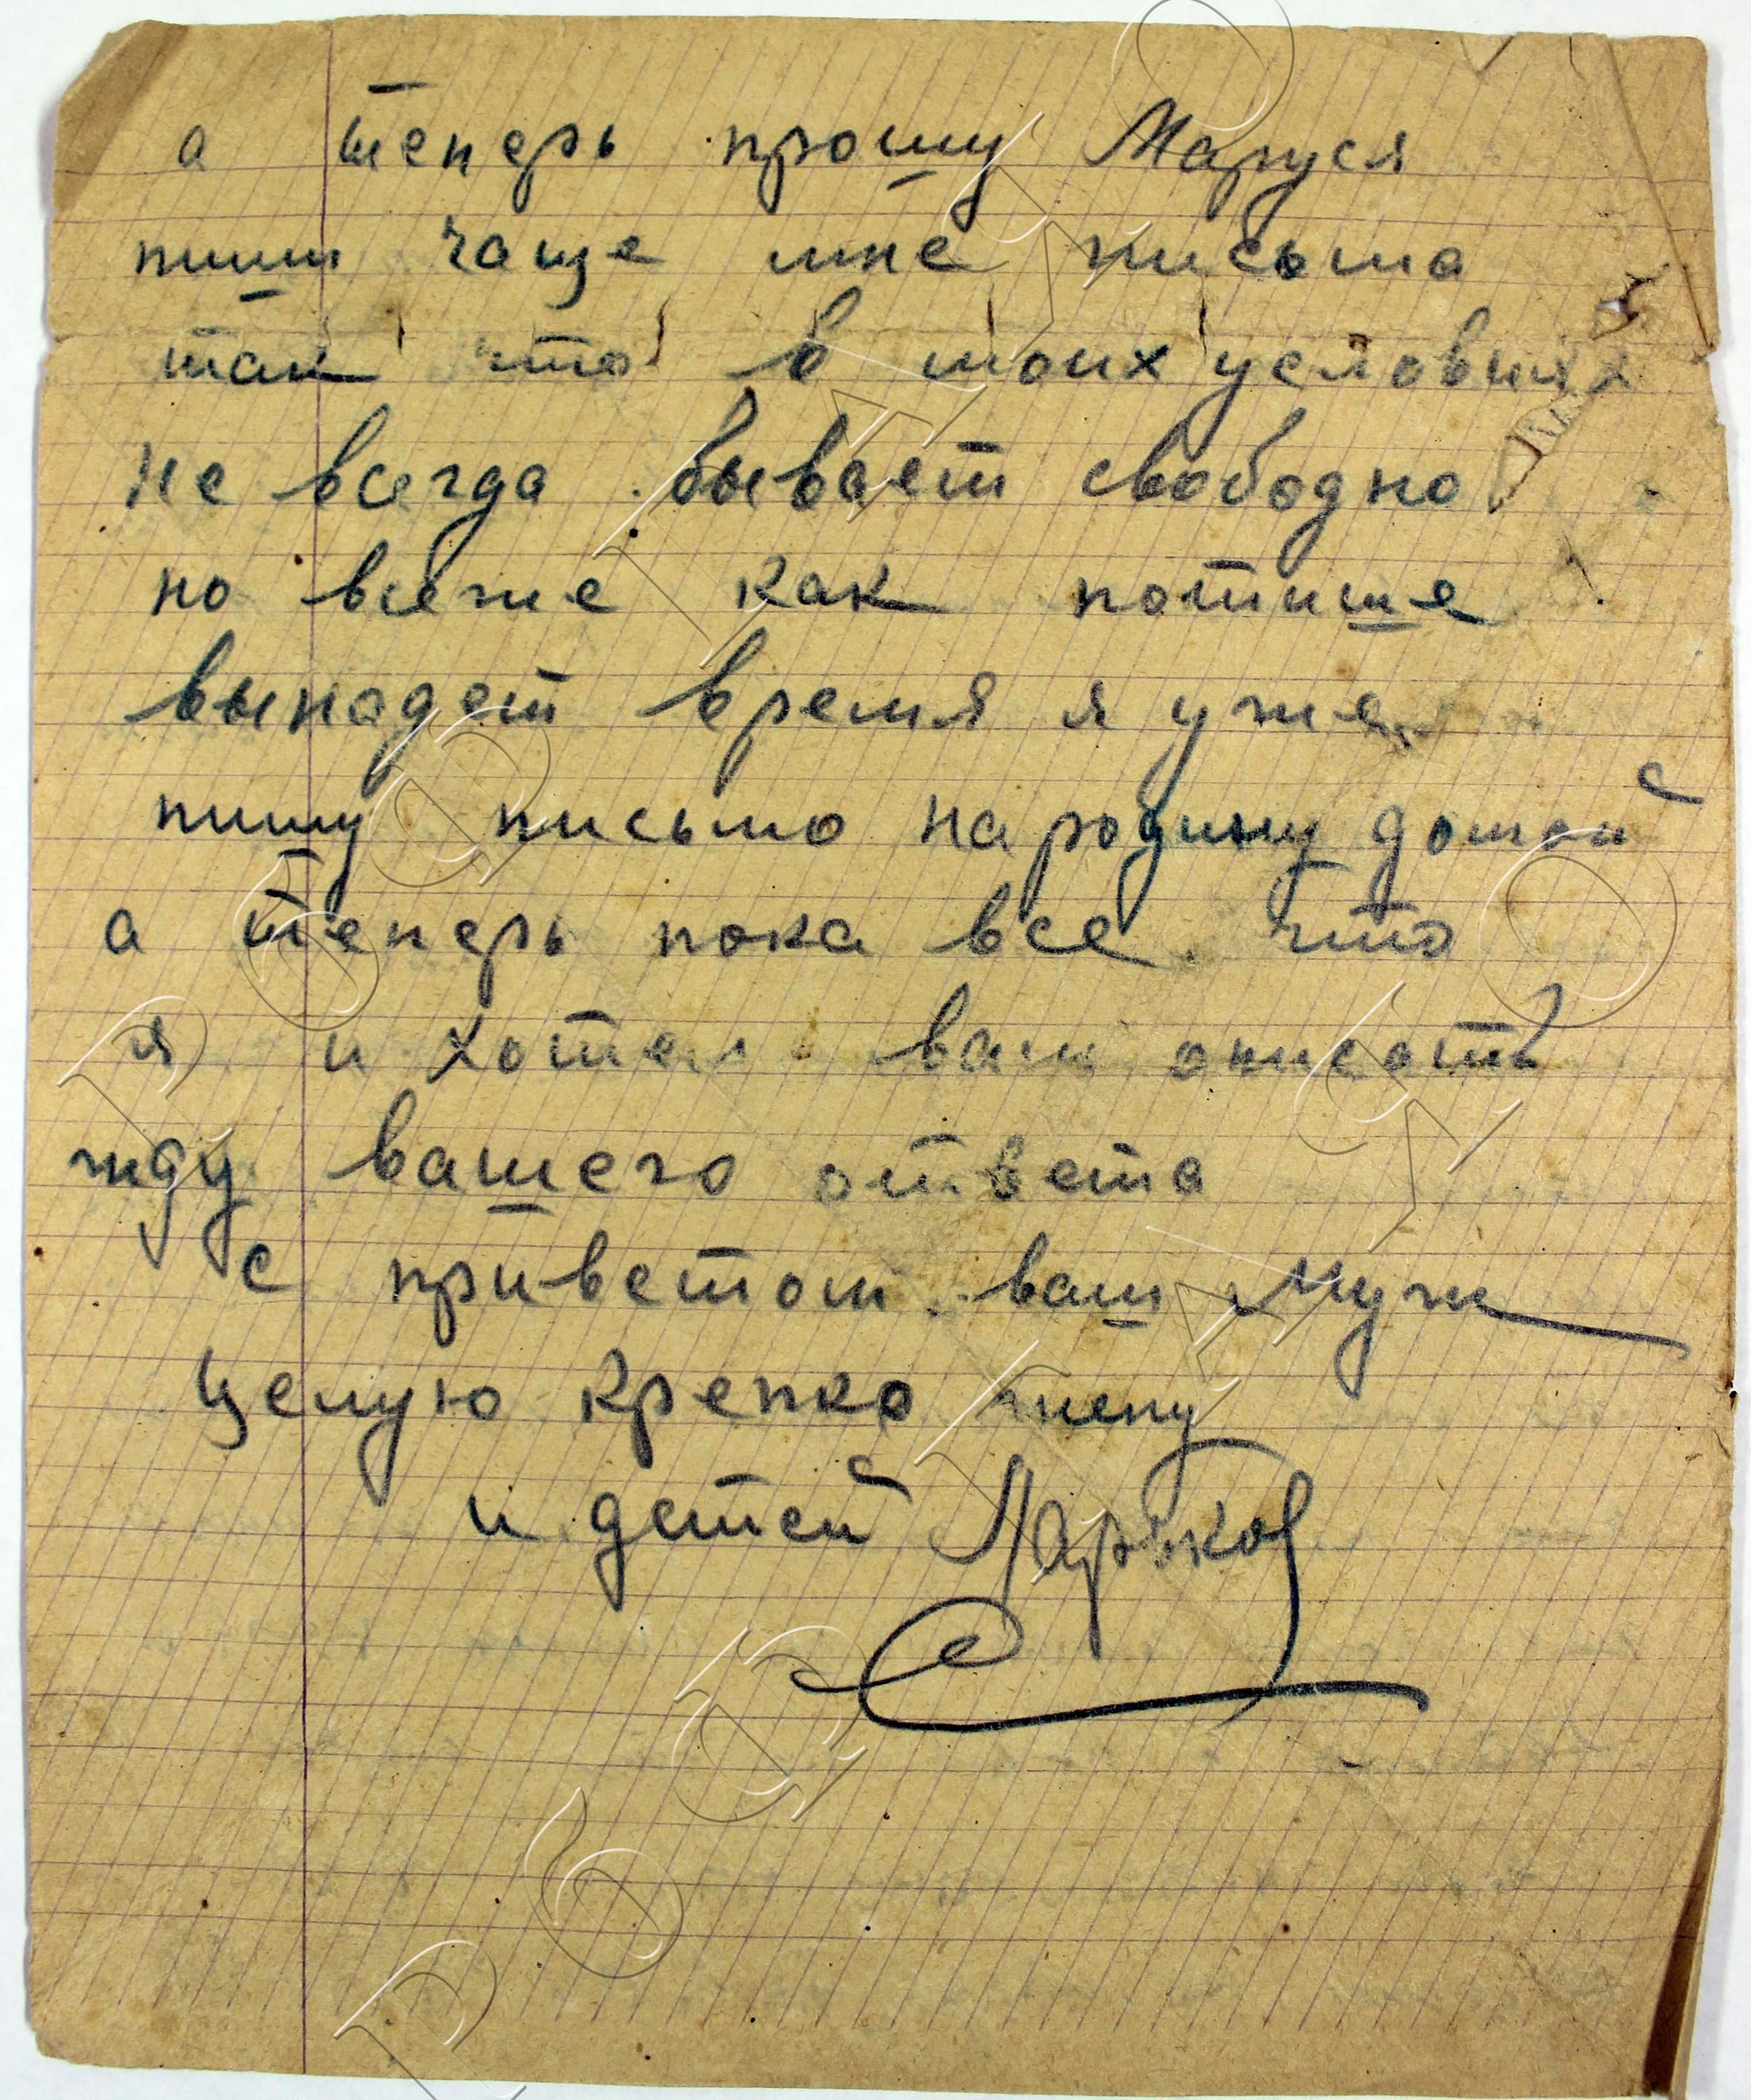 а теперь прошу Маруся
пиши чаще мне письма
так что в моих условиях
не всегда бывает свободно
но всеже как потише
выпадет время я уже
пишу письмо на родину домой
а теперь пока все что
я и хотел вам описать
жду вашего ответа
с приветом ваш муж
целую крепко жену
и детей